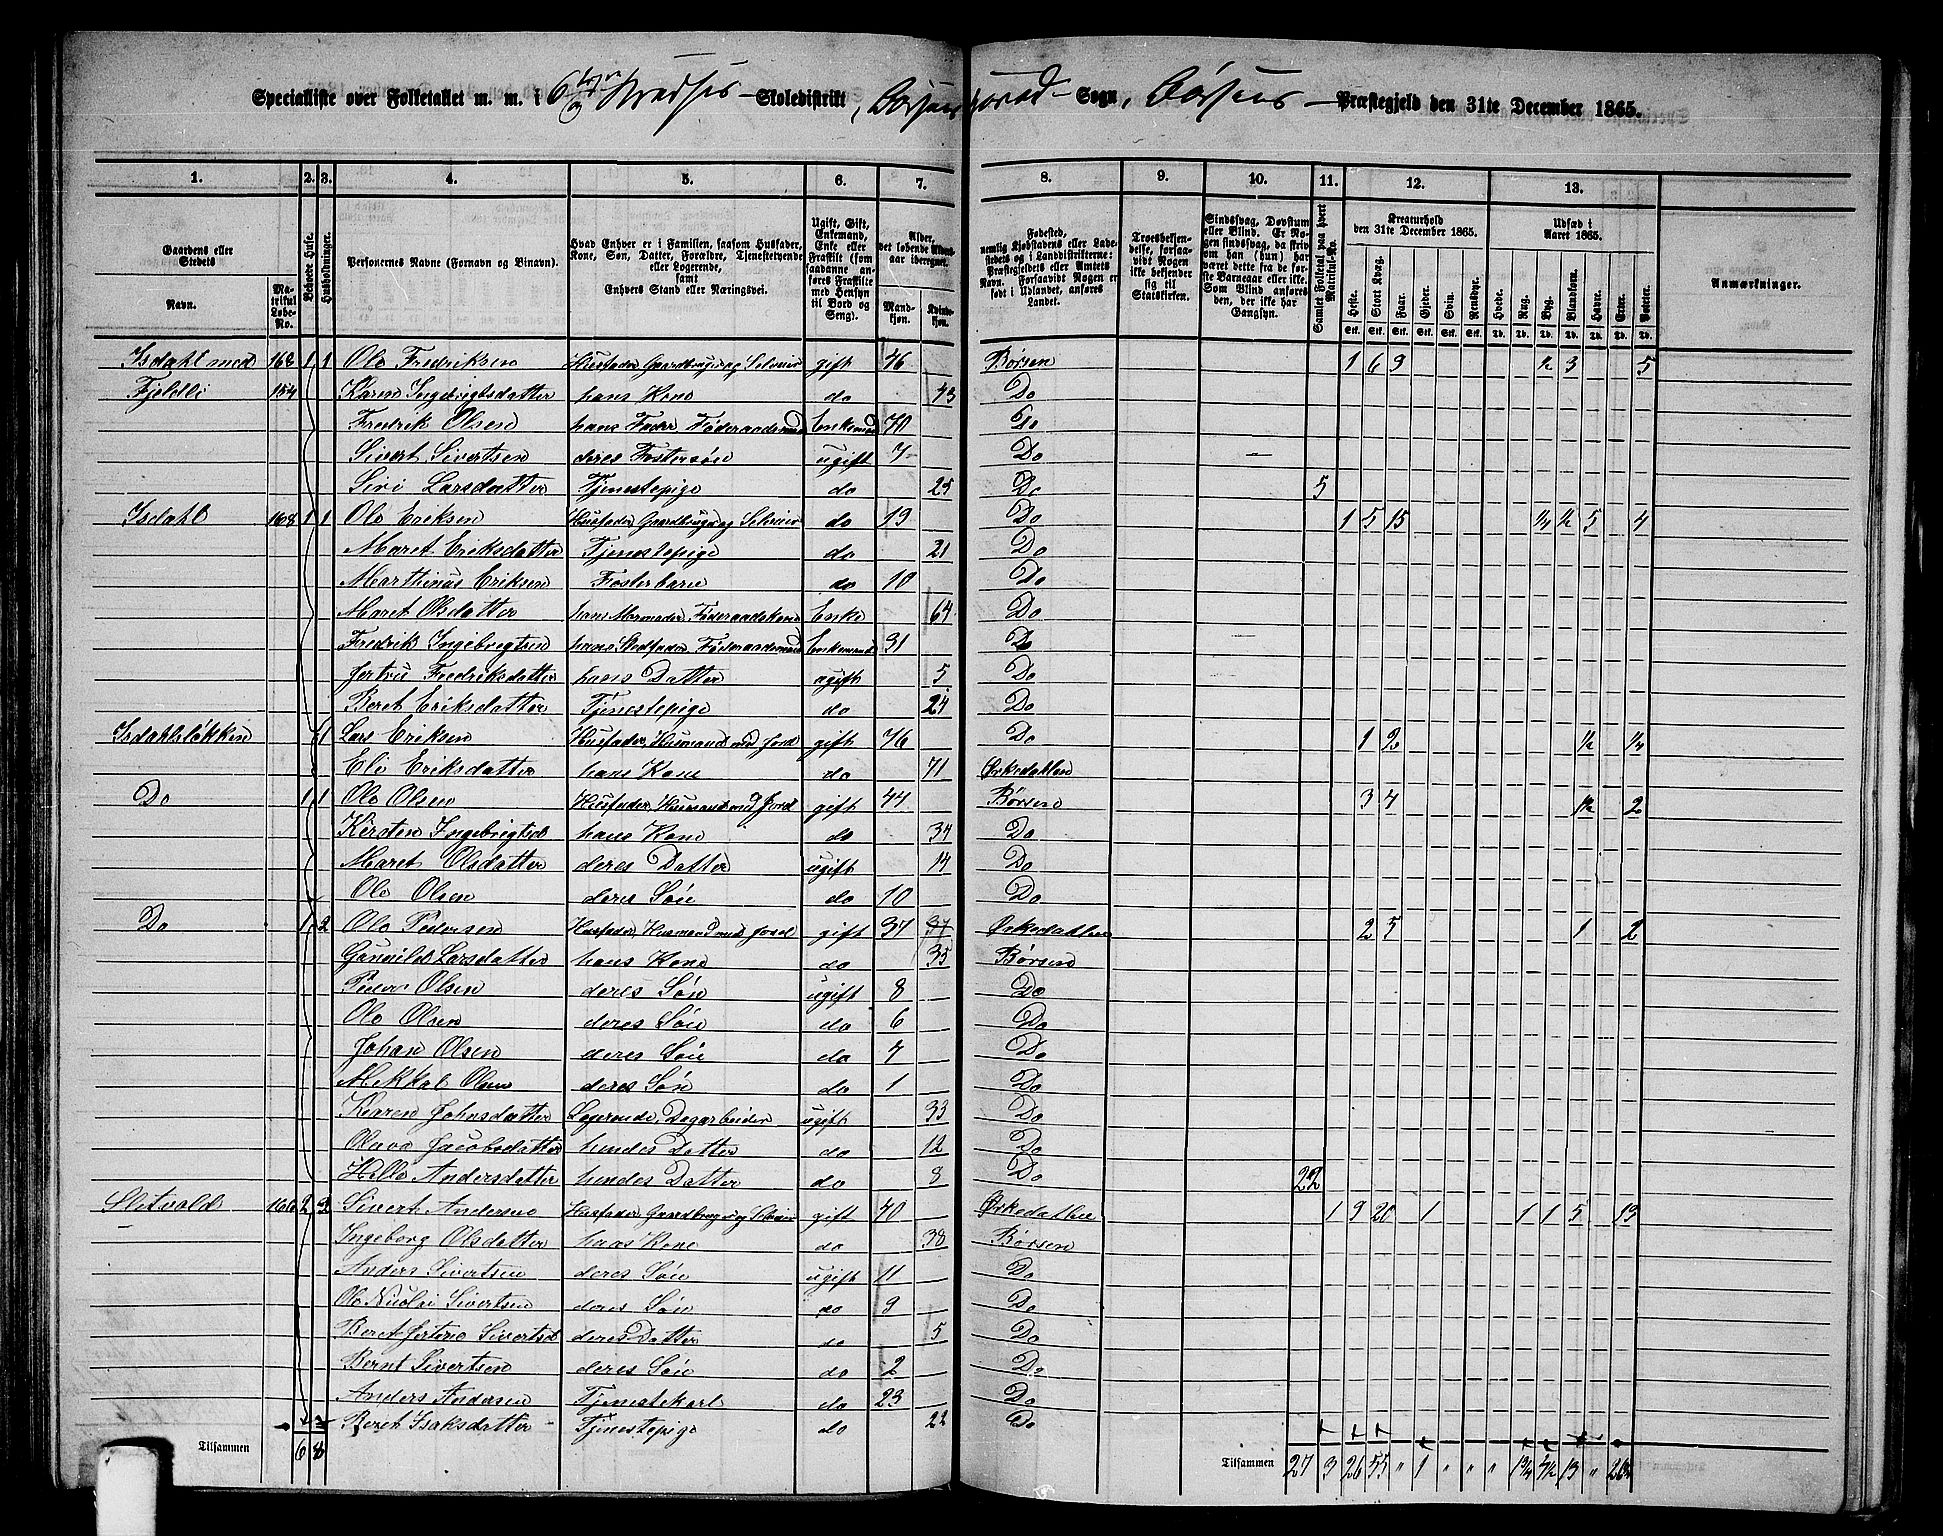 Specialliste over Folketallet m. m. i 6te Skoledistrikt, Børsen Sogn, Børsens Præstegjeld den 31te December 1865.
1. 2. 3. 4. 5. 6. 7. 8. 9. 10. 11. 12. 13.
Gaardens eller Stedets Navn. Matrikul Løbe-No. Beboede Huse. Husholdninger. Personernes Navne (Fornavn og Binavn). Hvad Enhver er i Familien, saasom Husfader, Kone, Søn, Datter, Forældre, Tjenestetyende eller Logerende, samt Enhvers Stand eller Næringsvei. Ugift, Gift, Enkemand, Enke eller Fraskilt (som saadanne anføres Fraskilte med Hensyn til Bord og Seng). Alder, det løbende Alders-aar iberegnet. Mandkjøn. Kvindekjøn.
Fødested, nemlig Kjøbstadens eller Ladestedets og i Landdistrikterne: Præstegjeldets eller Amtets Navn. Forsaavidt Nogen er født i Udlandet, anføres Landet. Troesbekjendelse, forsaavidt Nogen ikke bekjender sig til Statskirken. Sindssvag, Døvstum eller Blind. Er Nogen sindssvag, da skrives om han (hun) har været dette fra de første Barneaar eller ikke. Som Blind anføres den, der ikke har Gangsyn. Samlet Folketal paa hvert Matrikul-No. Kreaturhold den 31te December 1865. Udsæd i Aaret 1865. Anmærkninger.
Heste. Stort Kvæg. Faar. Gjeder. Svin. Rensdyr. Hvede. Rug. Byg. Blandkorn. Havre. Erter. Poteter.
Stk. Stk. Stk. Stk. Stk. Stk. Td. Td. Td. Td. Td. Td. Td.
Isdahl med 168 1 1 Ole Fredriksen Husfader Gaardbruger og Selveier gift 46 Børsen 1 6 9 ½ 3 5
Fjeldli 154 Karen Ingebrigtsdatter hans Kone do 43 Do
Fredrik Olsen hans Fader Føderaadsmand Enkemand 70 Do
Sivert Sivertsen deres Fostersøn ugift 7 Do
Siri Larsdatter Tjenestepige do 25 Do 5
Isdahl 168 1 1 Ole Eriksen Husfader Gaardbruger og Selveier do 19 Do 1 5 15 ¼ ½ 5 4
Maret Eriksdatter Tjenestepige do 21 Do
Marthinus Eriksen Fosterbarn do 10 Do
Maret Olsdatter hans Mormoder, Føderaadskone Enke 64 Do
Fredrik Ingebrigtsen hans Stedfader, Føderaadsmand Enkemand 31 Do
Jertru Fredriksdatter hans Datter ugift 5 Do
Beret Eriksdatter Tjenestepige do 24 Do
Isdahlsløkken 1 Lars Eriksen Husfader, Husmand med Jord gift 76 Do 1 2 ½ ¼
Eli Eriksdatter hans Kone do 71 Ørkedalen
Do 1 1 Ole Olsen Husfader, Husmand med Jord gift 44 Børsen 3 4 1½ 2
Kirsten Ingebrigtsd hans Kone do 34 Do
Maret Olsdatter deres Datter ugift 14 Do
Ole Olsen deres Søn do 10 Do
Do 1 2 Ole Pedersen Husfader, Husmand med Jord gift 37 37 Ørkedalen 2 5 1 2
Gunild Larsdatter hans Kone do 35 Børsen
Peder Olsen deres Søn ugift 8 Do
Ole Olsen deres Søn do 6 Do
Johan Olsen deres Søn do 4 Do
Mikkal Olsen deres Søn do 1 Do
Karen Johnsdatter Logerende, Dagarbeider ugift 33 Do
Olava Jacobsdatter hendes Datter do 12 Do
Helle Andersdatter hendes Datter do 8 Do 22
Slitvold 166 2 2 Sivert Andersen Husfader, Gaardbruger og Selveier gift 40 Ørkedalen 1 9 20 1 1 1 5 13
Ingeborg Olsdatter hans Kone do 38 Børsen
Anders Sivertsen deres Søn ugift 11 Do
Ole Nicolai Sivertsen deres Søn do 9 Do
Beret Jertine Sivertsd deres Datter do 5 Do
Bernt Sivertsen deres Søn do 2 Do
Anders Andersen Tjenestekarl do 23 Do
Beret Isaksdatter Tjenestepige do 22 Do
Tilsammen 6 8 Tilsammen 27 3 26 55 " 1 " " " 1¾ 4½ 13 "